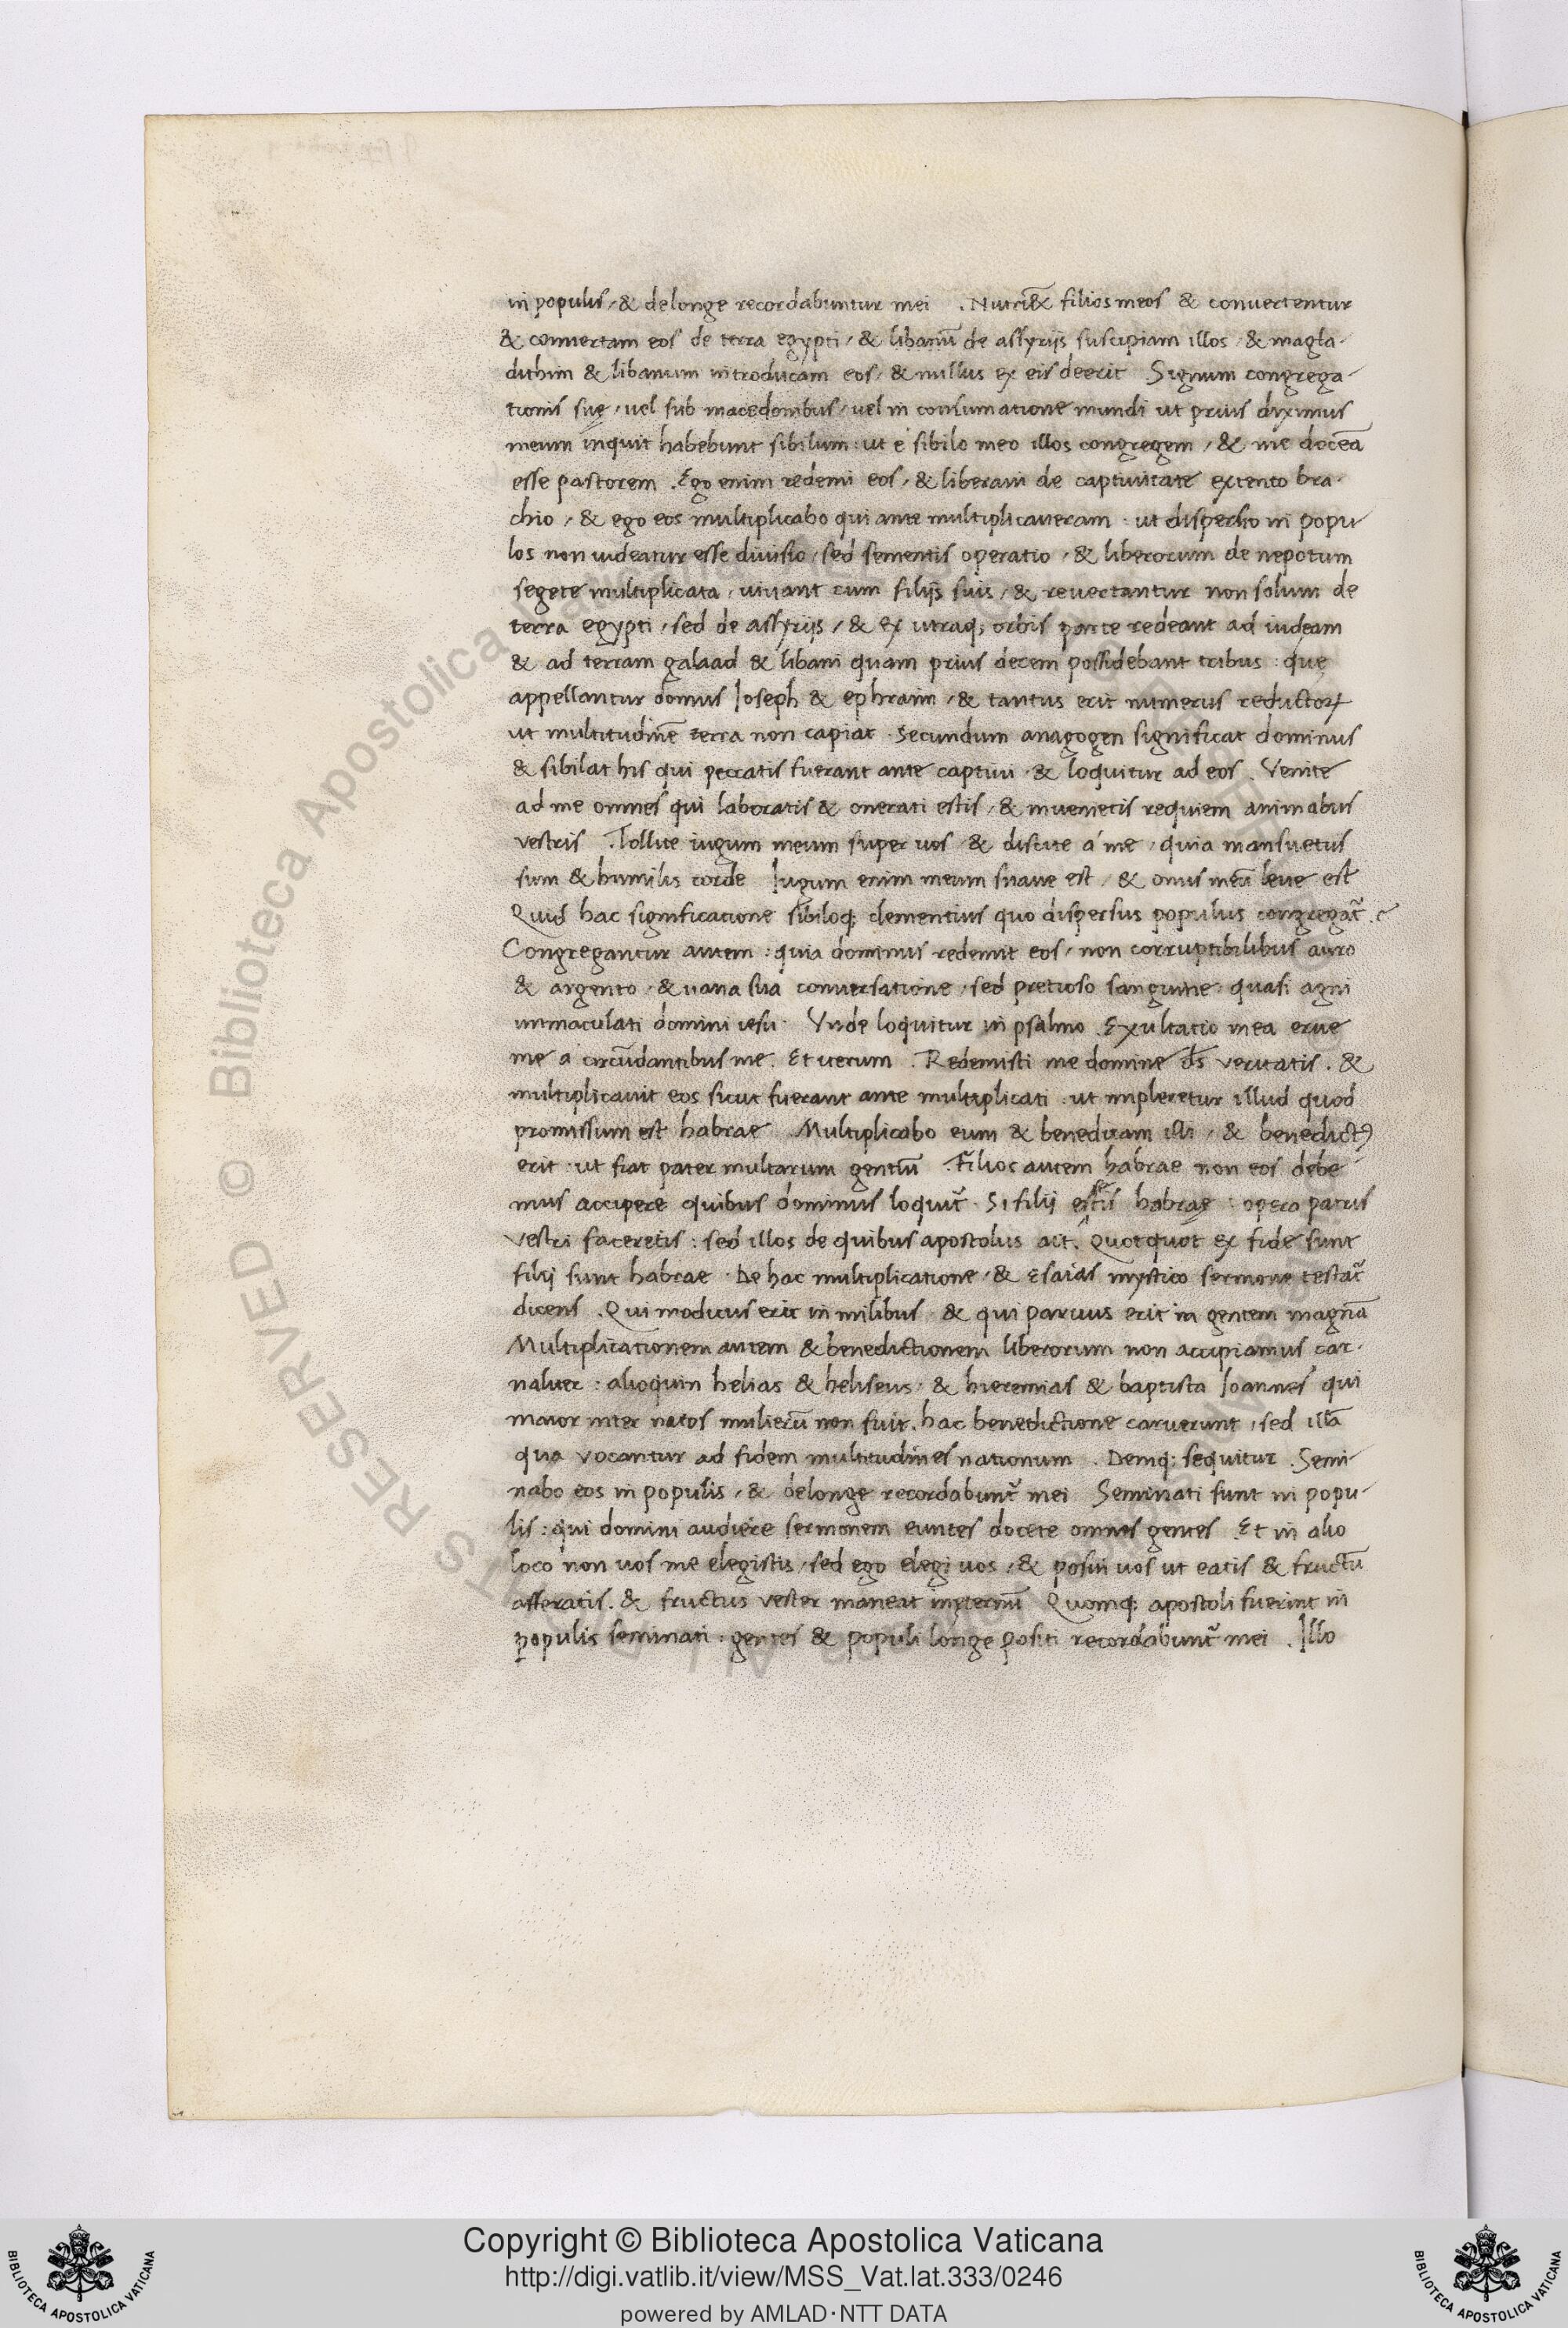 in populis, & de longe recordabuntur mei . Nutrient filios meos & convertentur
& convertam eos de terra egypti, & libanū de assyriis suscipiam illos, & magla-
dithim & libanum introducam eos, & nullus ex eis deerit Signum congrega-
tionis suę, vel sub macedonibus, vel in consumatione mundi ut prius diximus
meum inquit habebunt sibilum: ut e sibilo meo illos congregem, & me doceā
esse pastorem . Ego enim redemi eos, & liberavi de captivitate extento bra-
chio, & ego eos multiplicabo qui ante multiplicaveram: ut disperdio in popu-
los non videatur esse divisio, sed sementis operatio, & liberorum de nepotum
segete multiplicata, vivant cum filiis suis, & revertantur non solum de
terra egypti, sed de assyriis, & ex utraq; orbis parte redeant ad iudeam
& ad terram galaad & libani quam prius decem possidebant tribus: quę
appellantur domus Ioseph & ephraim, & tantus erit numerus reductoꝝ
ut multitudinē terra non capiat. Secundum anagogen significat dominus
& sibilat his qui peccatis fuerant ante captivi. & loquitur ad eos. Venite
ad me omnes qui laboratis & onerati estis, & invenietis requiem animabus
vestris . Tollite iugum meum super vos & discite a me, quia mansuetus
sum & humilis corde Iugum enim meum suave est, & onus meū leve est
Quid hac significatione sibiloq; clementius quo dispersus populus congregat̄.?
Congregantur autem: quia dominus redemit eos, non corruptibilibus auro
& argento, & vana sua conversatione, sed pretioso sanguine, quasi agni
immaculati domini iesu. Vnde loquitur in psalmo . Exultatio mea erue
me a circūdantibus me. Et iterum . Redemisti me domine d̄s veritatis. &
multiplicavit eos sicut fuerant ante multiplicati: ut impleretur illud quod
promissum est habrae . Multiplicabo eum & benedicam illi, & benedictꝰ
erit: ut fiat pater multarum gentiū . Filios autem habrae non eos debe-
mus accipere quibus dominus loquit̄. Si filii estis habrae: opera patris
vestri faceretis: sed illos de quibus apostolus ait. Quotquot ex fide sunt
filii sunt habrae. De hac multiplicatione, & Esaias mystico sermone testat̄
dicens . Qui modicus erit in milibus, & qui parvus erit in gentem magnā
Multiplicationem autem & benedictionem liberorum non accipiamus car-
naliter: alioquin helias & heliseus, & hieremias & baptista Ioannes qui
maior inter natos mulierū non fuit. hac benedictione caruerunt, sed illā
qua vocantur ad fidem multitudines nationum . Deniq; sequitur . Semi-
nabo eos in populis, & de longe recordabunt̄ mei Seminati sunt in popu-
lis: qui domini audiere sermonem euntes docete omnes gentes . Et in alio
loco non vos me elegistis, sed ego elegi vos, & posui vos ut eatis & fructū
afferatis. & fructus vester maneat inęternū Quomq; apostoli fuerint in
populis seminati: gentes & populi longe positi recordabunt̄ mei . Illo
Copyright © Biblioteca Apostolica Vaticana
http://digi.vatlib.it/view/MSS_Vat.lat.333/0246
powered by AMLAD·NTT DATA
BIBLIOTECA APOSTOLICA VATICANA
BIBLIOTECA APOSTOLICA VATICANA